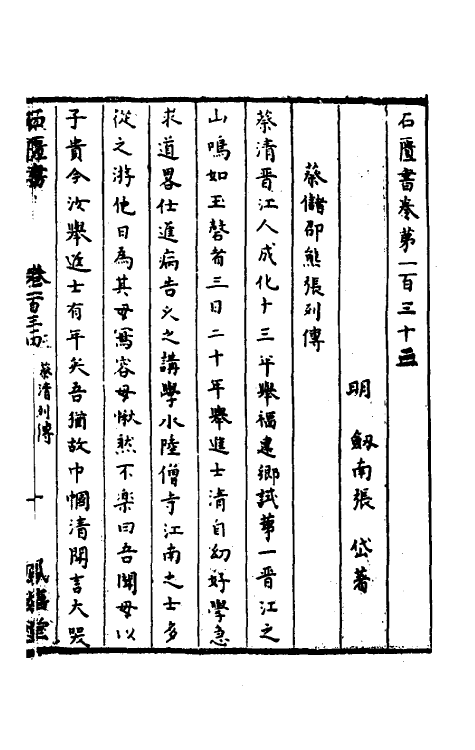 石匱書卷第一百三十三
明 劔南張 岱著
蔡儲邵熊張列傳
蔡清晋江人成化十三年舉福建鄉試第一晋江之
山鳴如玉磬者三日二十年舉進士清自幼好學急
求道畧仕進病告久之講學水陸僧寺江南之士多
從之游他日為其母寫容母愀然不楽曰吾聞母以
子貴今汝舉進士有年矣吾猶故巾幗清聞言大哭
石匱書 卷一百三十 蔡清列傳 十